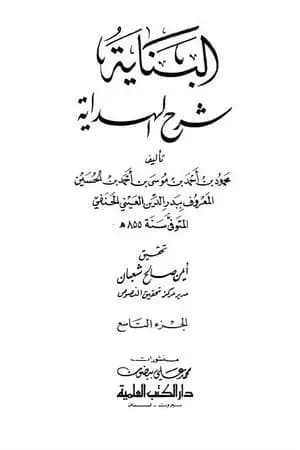 البناية
شرح الهداية
تأليف
محمود بن أحمد بن موسى بن أحمد بن الحسين
المعروف ببدر الدين العيني الحنفي
المتوفى سنة ٨٥٥ هـ
تحقيق
أيمن صالح شعبان
مدير مركز تحقيق النصوص
الجزء التاسع
منشورات
محمد علي بيضون
دار الكتب العلمية
بيروت - لبنان